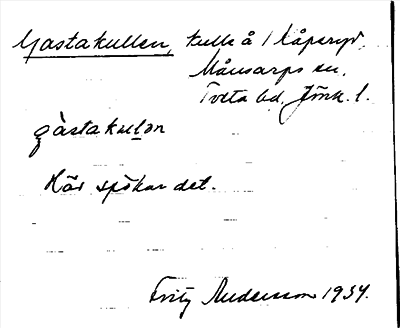 Gastakullen, kulle å 1 Kåperyd,
Månsarps sn,
Tveta hd, Jönk. l.
gàstakulən
Här spökar det.
Fritz Andersson 1934.